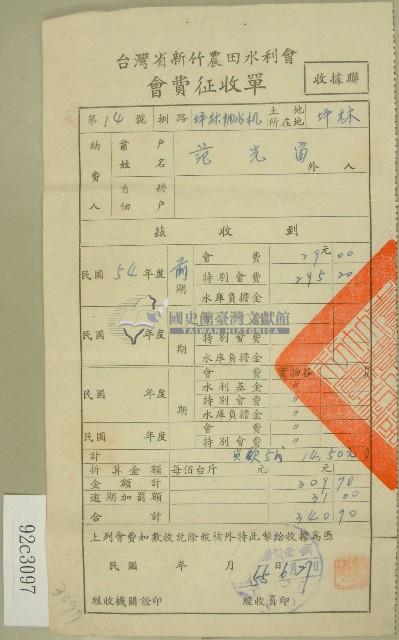 台灣省新竹農田水利會
會費征收單
收據聯
第 14 號 圳 路 坪林抽水机 土地所在地 坪林
納費人 業戶姓名 范光 外 人
自耕 佃戶
茲 收 到
民國 54 年度 前期 會費 29元00
特別會費 295 20
水庫負擔金
民國 年度 期
特別會費
水庫負擔金
國史館臺灣文獻館
TAIWAN HISTORICA
民國 年度 期 會費 實物谷
水利基金 〃
特別會費 〃
水庫負擔金 〃
民國 年度 會費 〃
特別會費 〃
計 14.50元
折算金額 每佰台斤 元 元
金額計 309 70
逾期加罰額 31 00
合計 340 70
上列會費如數收訖除報核外特此掣給收據為憑
民國 年 月 日
55.6.27
經收機關證印 經收員印
92c3097
3097